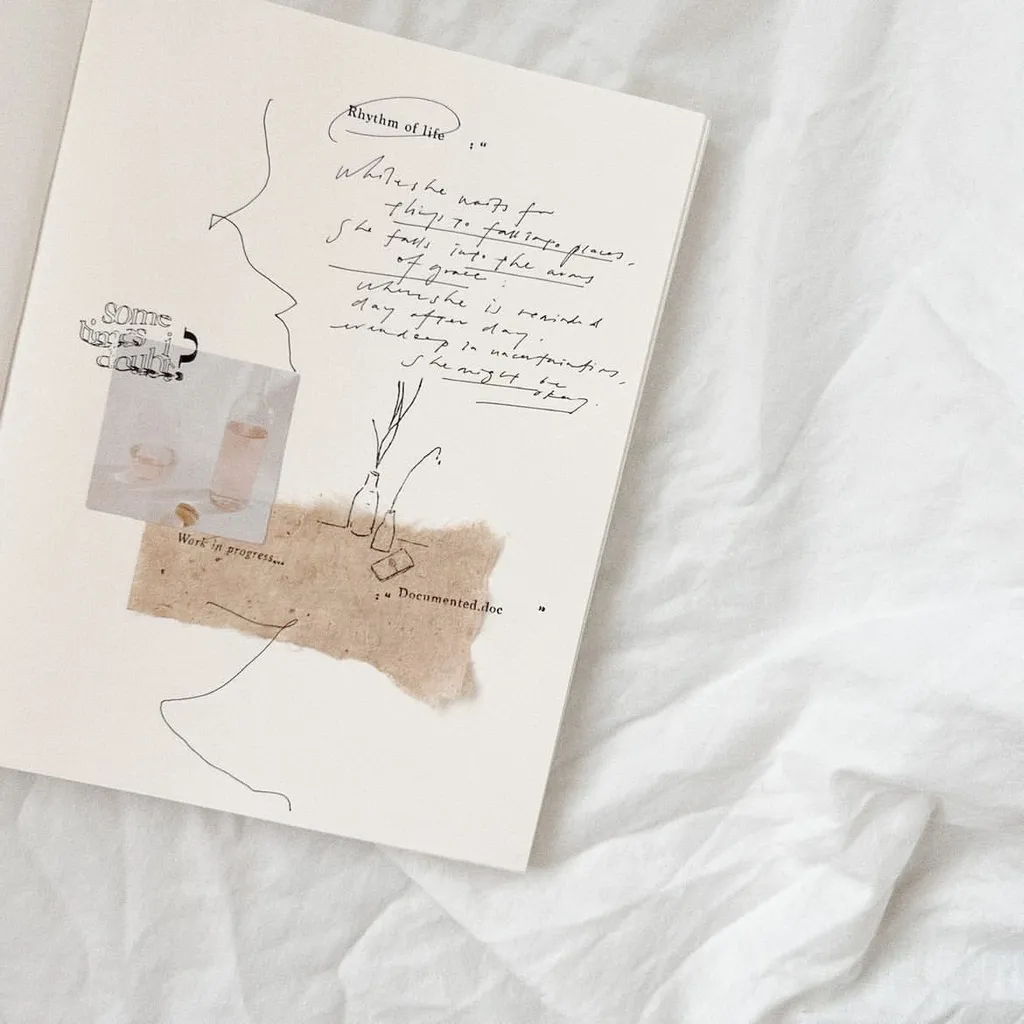 Rhythm of life
: “
while she waits for
things to fall into places.
She falls into the arms
of grace :
where she is reminded
day after day.
even deep in uncertainties,
She might be
okay.
some
times i
doubt
Work in progress...
: “ Documented.doc ”